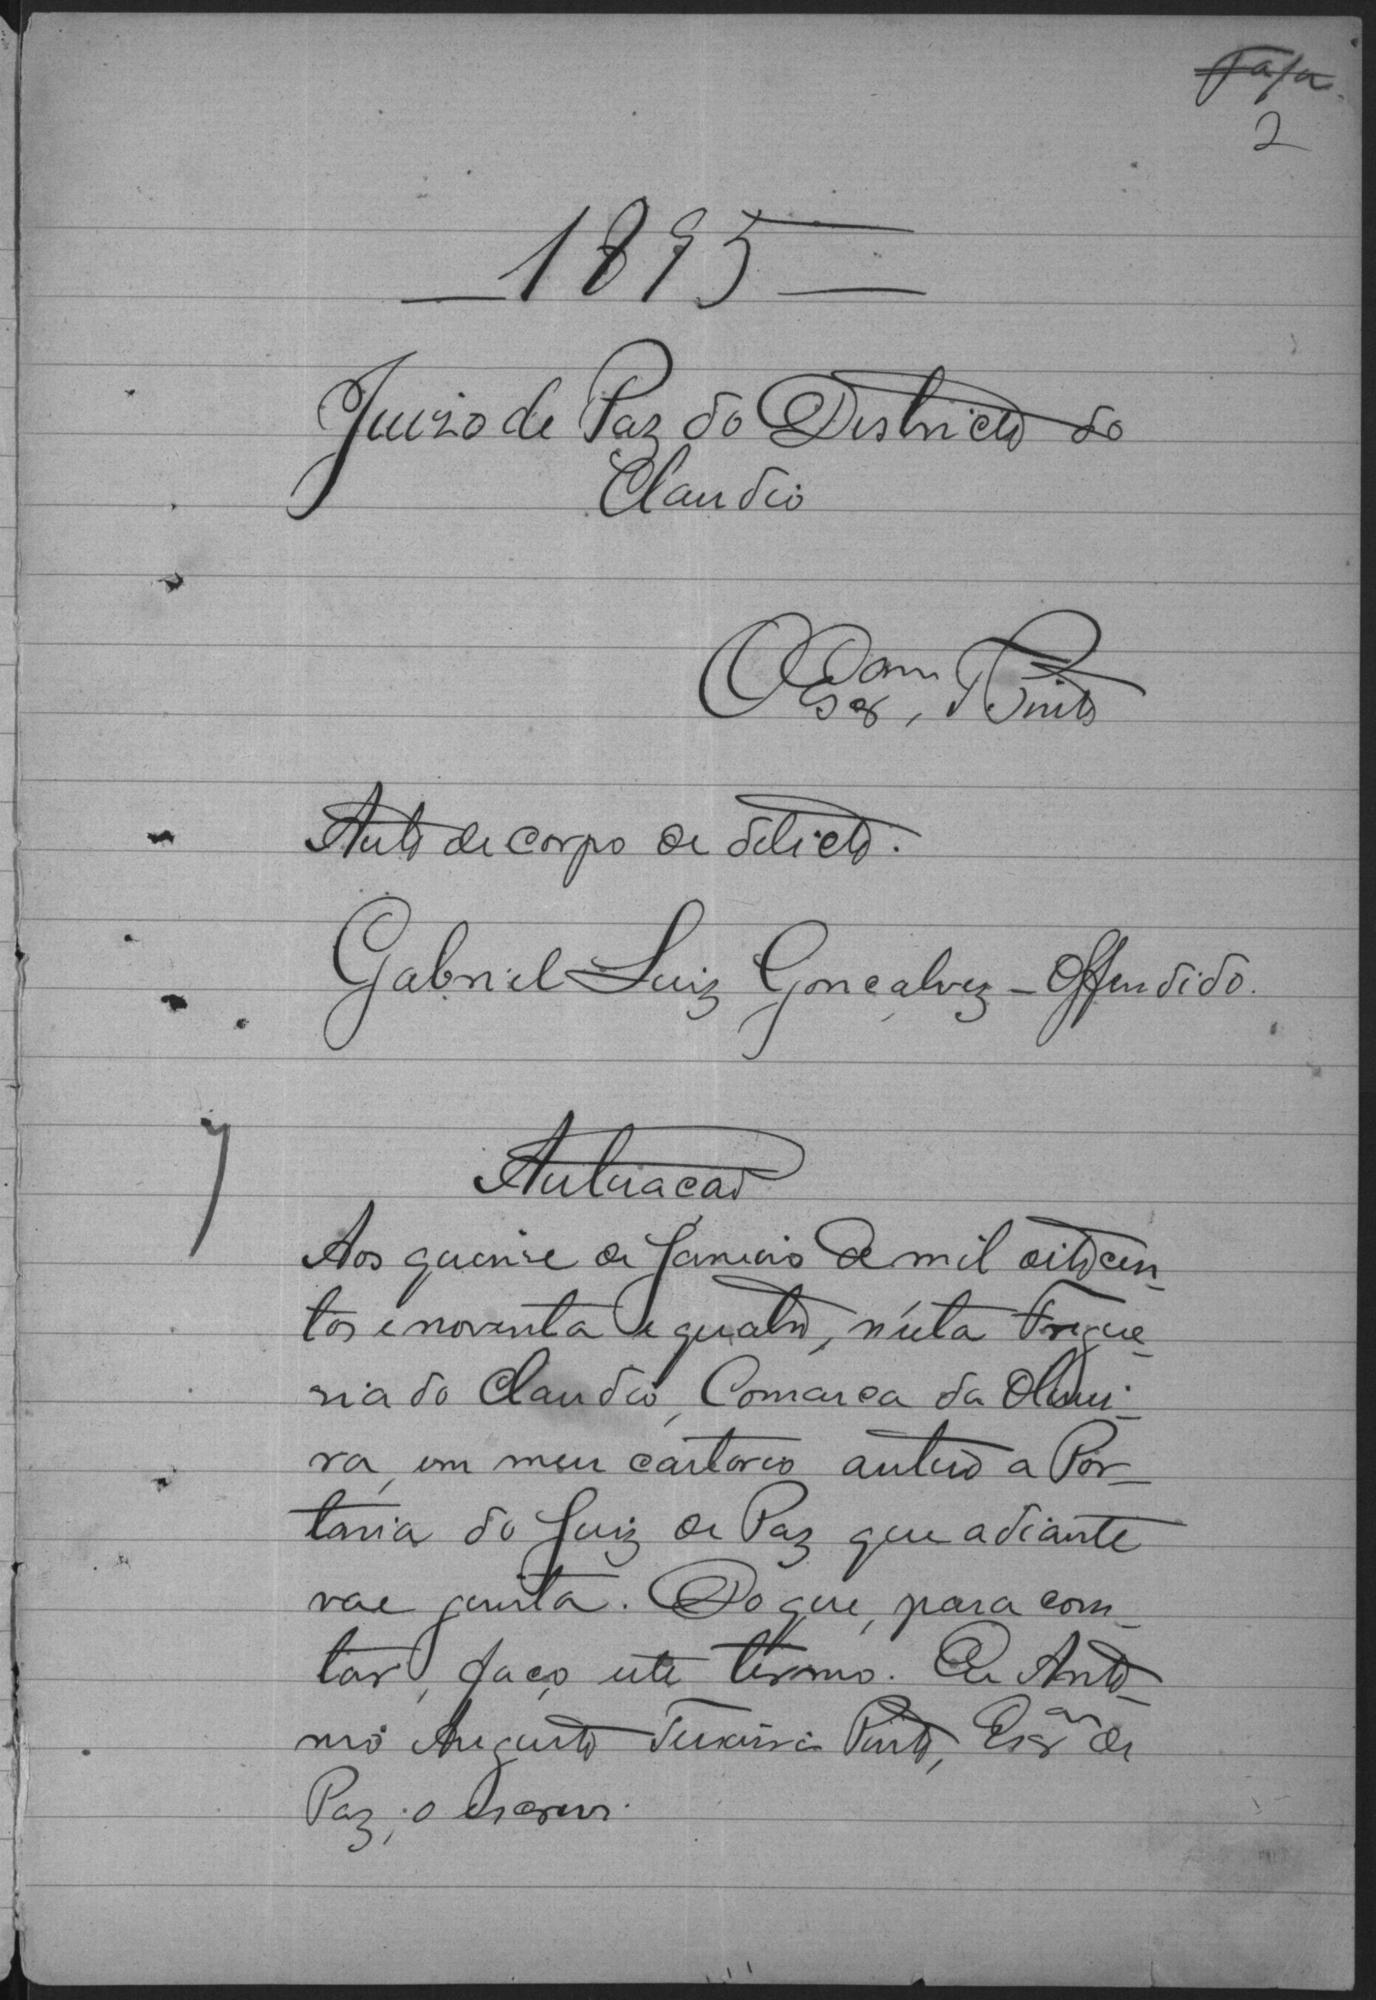 2
1895
Juizo de Paz do Districto do
Claudio
O Escr.am T Pinto
Auto de corpo de delicto.
Gabriel Luiz Gonçalvez - Offendido.
Autuacão
Aos quinze de Janeiro de mil oitocen-
tos e noventa e quatro, n'esta Fregue-
sia do Claudio, Comarca da Olivei-
ra, em meu cartorio autuo a Por-
taria do Juiz de Paz que adiante
vae junta. Do que, para com-
tar, faço este termo. Eu Anto-
nio Augusto Teixeira Pinto, Escr.am de
Paz, o escrevi.